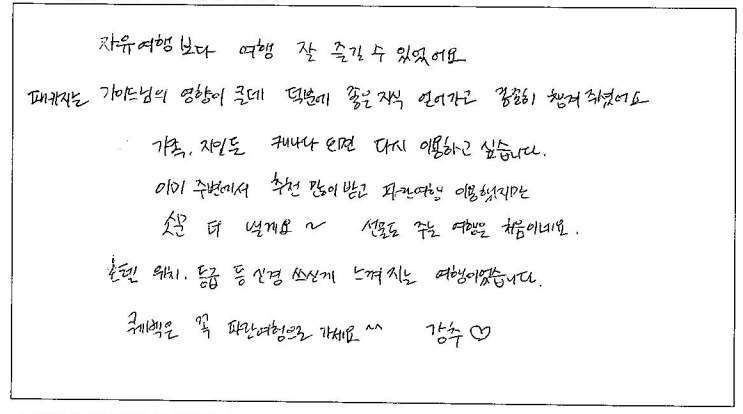 자유여행보다 여행 잘 즐길 수 있었어요
패키지는 가이드님의 영향이 큰데 덕분에 좋은 지식 얻어가고 꼼꼼히 챙겨 주셨어요
가족, 지인들 캐나다 오면 다시 이용하고 싶습니다.
이미 주변에서 추천 많이 받고 파란여행 이용했지만
소문 더 낼게요~ 선물도 주는 여행은 처음이네요.
호텔 위치, 등급 등 신경 쓰신게 느껴지는 여행이었습니다.
퀘벡은 꼭 파란여행으로 가세요^^ 강추♡